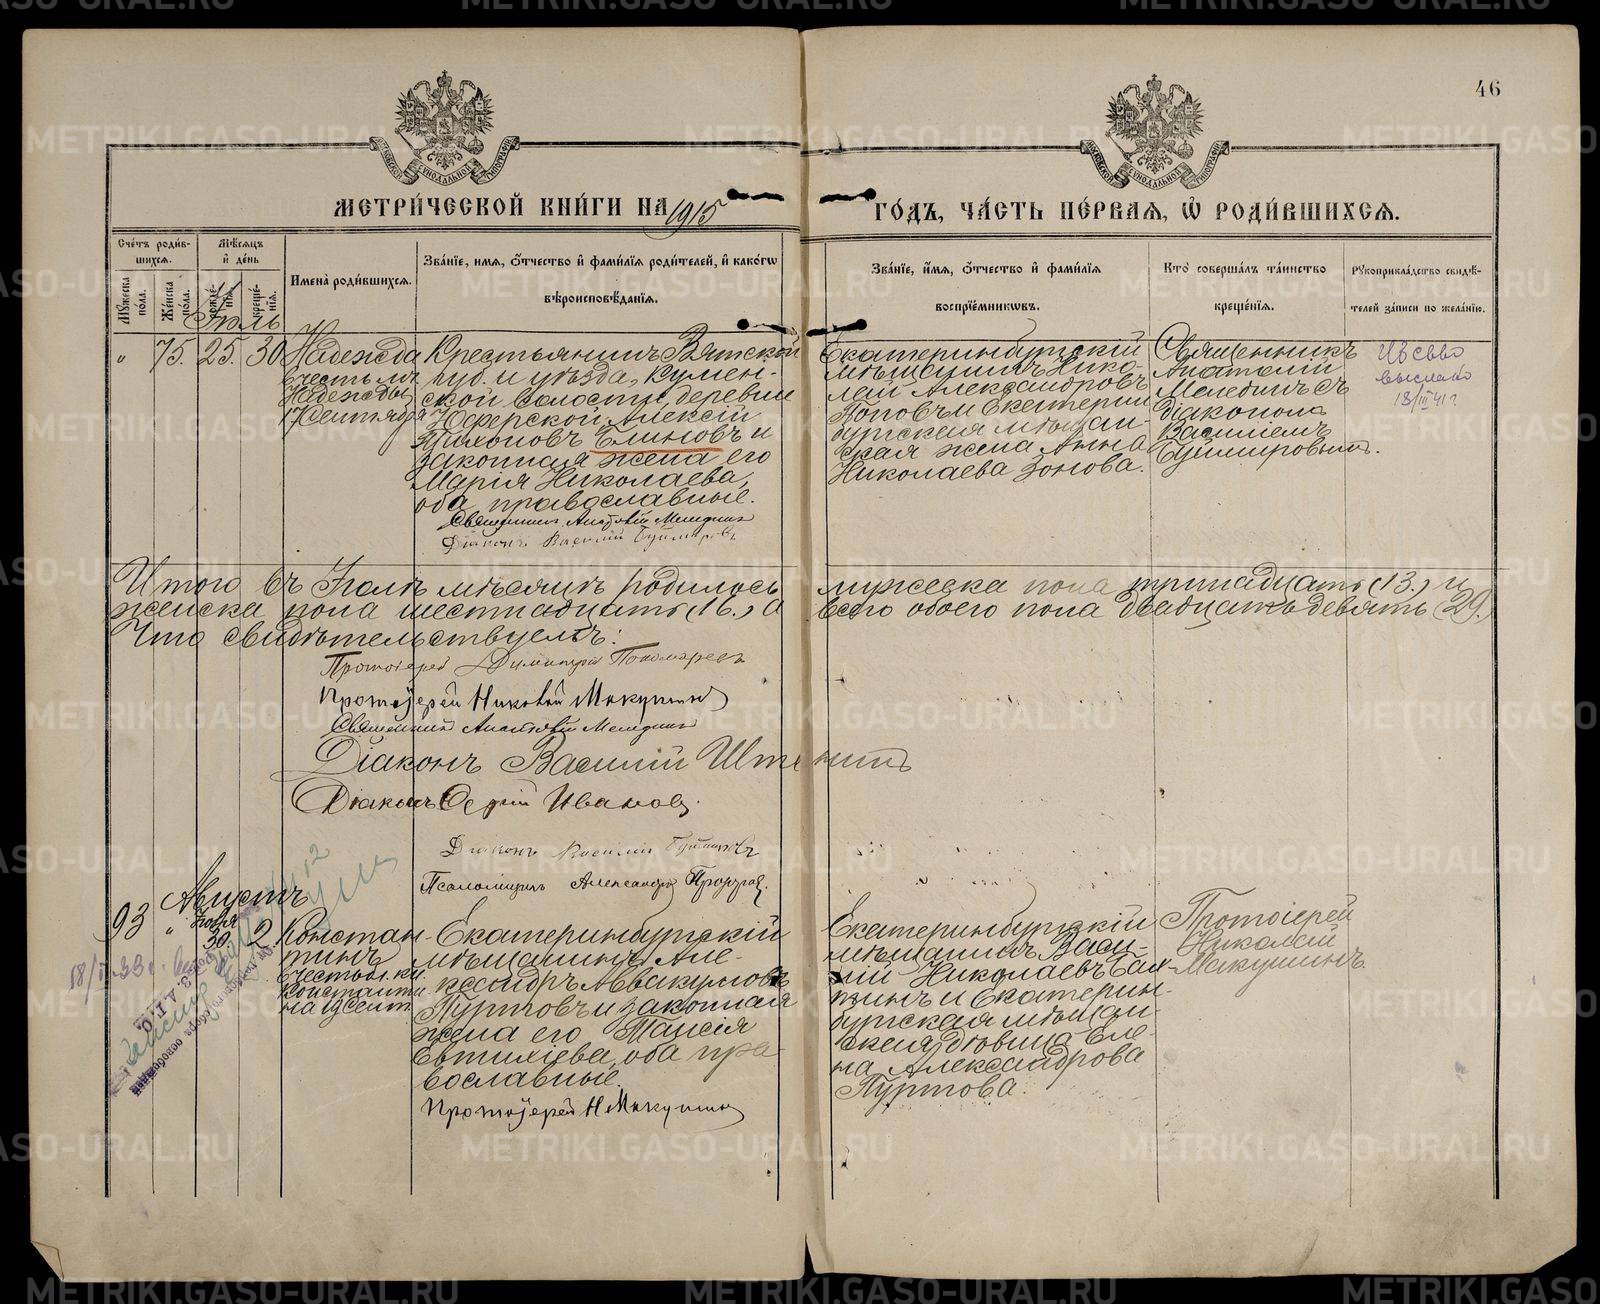 46
МЕТРИ́ЧЕСКОЙ КНИ́ГИ НА 1915 ГО́ДЪ, ЧА́СТЬ ПЕ́РВАЯ, Ѡ҆ РОДИ́ВШИХСЯ.
Сче́тъ роди́вшихся.
Мꙋ́жеска по́ла.
Же́нска по́ла.
Мѣ́сяцъ и҆ де́нь
рожде́нїя.
креще́нїя.
И҆мена̀ роди́вшихся.
Зва́нїе, и҆́мя, ѻ҆́тчество и҆ фами́лїя роди́телей, и҆ како́гѡ вѣроисповѣ́данїя.
Зва́нїе, и҆́мя, ѻ҆́тчество и҆ фами́лїя воспрїе́мникѡвъ.
Кто̀ соверша́лъ та́инство креще́нїя.
Рꙋкоприкла́дство свидѣ́телей за́писи по жела́нїю.
Іюль
" 75. 25. 30.
Надежда
въ честь мц.
Надежды,
17 Сентября
Крестьянинъ Вятской
губ. и уѣзда, Кумен-
ской волости, деревни
Алексій
Тихоновъ Блиновъ и
законная жена его
Марія Николаева,
оба православные.
Священникъ Анатолій Мелединъ
Діаконъ Василій Буймировъ
Екатеринбургскій
мѣщанинъ Нико-
лай Александровъ
Поповъ и Екатерин-
бургская мѣщан-
ская жена Анна
Николаева Зонова.
Священникъ
Анатолій
Мелединъ съ
діакономъ
Василіемъ
Буймировымъ.
выслано
18/III 41 г
Итого въ Іюлѣ мѣсяцѣ родилось мужеска пола тринадцать (13.) и
женска пола шестнадцать (16.), а всего обоего пола двадцать девять (29.)
Что свидѣтельствуемъ:
Протоіерей Димитрій Пономаревъ
Протоіерей Николай Макушинъ
Священникъ Анатолій Мелединъ
Діаконъ Василій
Діаконъ Сергій Ивановъ.
Діаконъ Василій Буймировъ
Псаломщикъ Александръ
Августъ
93 " Іюля 30. 2.
Констан-
тинъ
въ честь
Константи-
на
Екатеринбургскій
мѣщанинъ Але-
ксандръ Аввакумовъ
Пуртовъ и законная
жена его Таисія
Евтихіева, оба пра-
вославные.
Протоіерей Н Макушинъ
Екатеринбургскій
мѣщанинъ Васи-
лій Николаевъ
и Екатерин-
бургская мѣщан-
ская дѣвица Еле-
на Александрова
Пуртова.
Протоіерей
Николай
Макушинъ.
METRIKI.GASO-URAL.RU